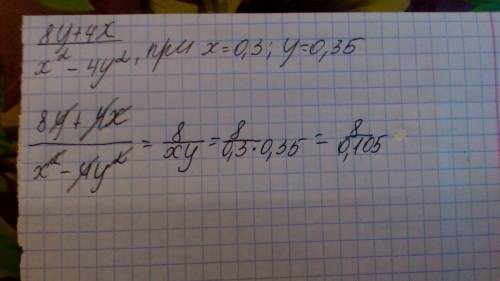 8y+4x / x² - 4y², при x=0,3; y=0,35
8y+4x / x² - 4y² = 8 / xy = 8 / 0,3·0,35 = 8 / 0,105